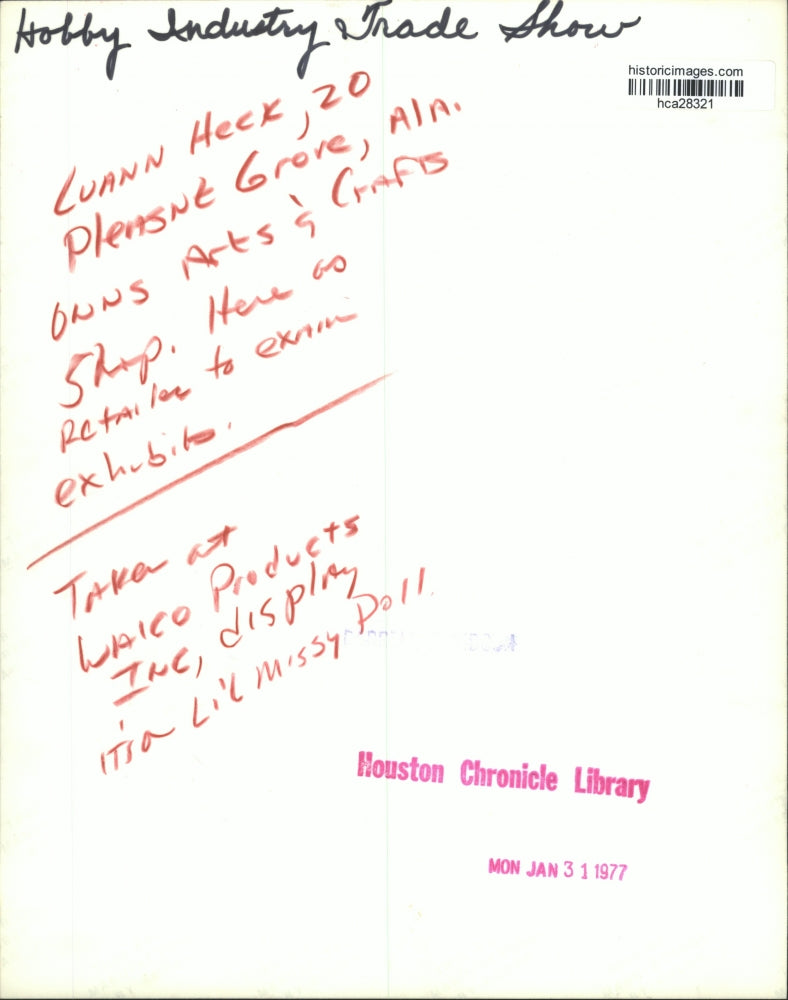 Hobby Industry Trade Show
historicimages.com
hca28321
LUANN Heck, 20
PleasNt Grove, AlA.
OWNS Arts & Crafts
Shop. Here as
Retailer to exam
exhibits.
Taken at
WAlco Products
INC, display
it's a Li'l Missy Doll.
Houston Chronicle Library
MON JAN 3 1 1977